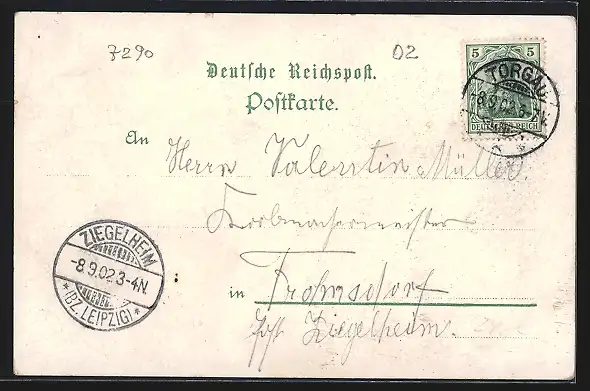 7290
02
Deutsche Reichspost.
Postkarte.
5 5
DEUTSCHES REICH
TORGAU
8.9.02
An Herrn Valentin Müller.
Korbmachermeister
in Frohnsdorf
Post Ziegelheim.
ZIEGELHEIM
-8.9.02.3-4N.
* (BZ. LEIPZIG) *